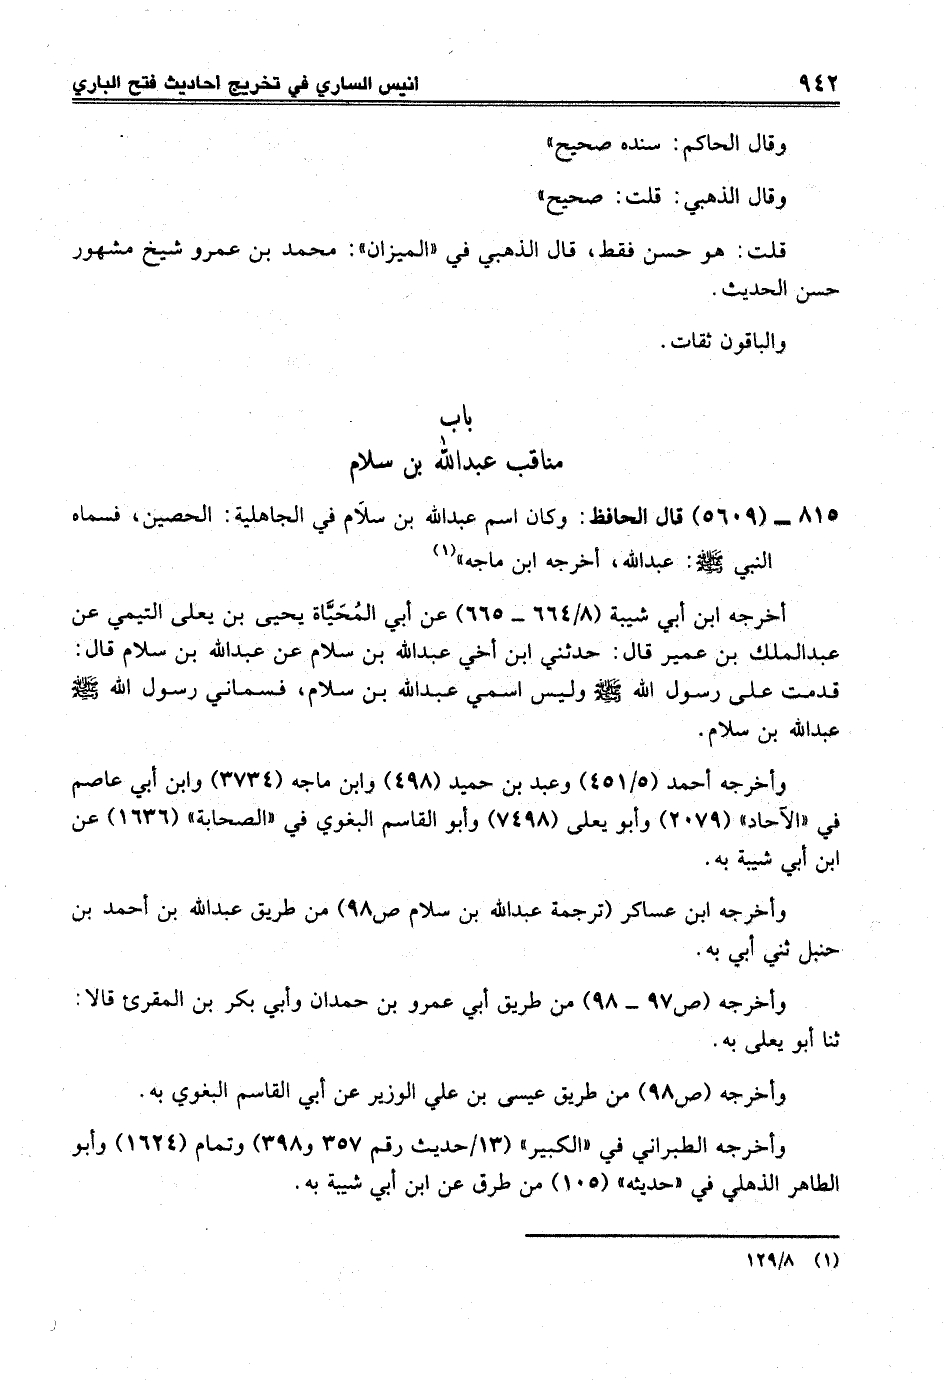 ٩٤٢ انيس الساري في تخريج احاديث فتح الباري
وقال الحاكم: سنده صحيح»
وقال الذهبي: قلت: صحيح»
قلت: هو حسن فقط، قال الذهبي في «الميزان»: محمد بن عمرو شيخ مشهور
حسن الحديث.
والباقون ثقات.
باب
مناقب عبدالله بن سلام
٨١٥ ــ (٥٦٠٩) قال الحافظ: وكان اسم عبدالله بن سلَام في الجاهلية: الحصين، فسماه
النبي ﷺ: عبدالله، أخرجه ابن ماجه»(١)
أخرجه ابن أبي شيبة (٦٦٤/٨ ــ ٦٦٥) عن أبي المُحَيَّاة يحيى بن يعلى التيمي عن
عبدالملك بن عمير قال: حدثني ابن أخي عبدالله بن سلام عن عبدالله بن سلام قال:
قدمت على رسول الله ﷺ وليس اسمي عبدالله بن سلام، فسماني رسول الله ﷺ
عبدالله بن سلام.
وأخرجه أحمد (٤٥١/٥) وعبد بن حميد (٤٩٨) وابن ماجه (٣٧٣٤) وابن أبي عاصم
في «الآحاد» (٢٠٧٩) وأبو يعلى (٧٤٩٨) وأبو القاسم البغوي في «الصحابة» (١٦٣٦) عن
ابن أبي شيبة به.
وأخرجه ابن عساكر (ترجمة عبدالله بن سلام ص٩٨) من طريق عبدالله بن أحمد بن
حنبل ثني أبي به.
وأخرجه (ص٩٧ ــ ٩٨) من طريق أبي عمرو بن حمدان وأبي بكر بن المقرئ قالا:
ثنا أبو يعلى به.
وأخرجه (ص٩٨) من طريق عيسى بن علي الوزير عن أبي القاسم البغوي به.
وأخرجه الطبراني في «الكبير» (١٣/حديث رقم ٣٥٧ و٣٩٨) وتمام (١٦٢٤) وأبو
الطاهر الذهلي في «حديثه» (١٠٥) من طرق عن ابن أبي شيبة به.
(١) ١٢٩/٨